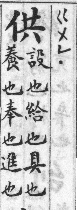 供
ㄍㄨㄥ
設也給也具也
養也奉也進也